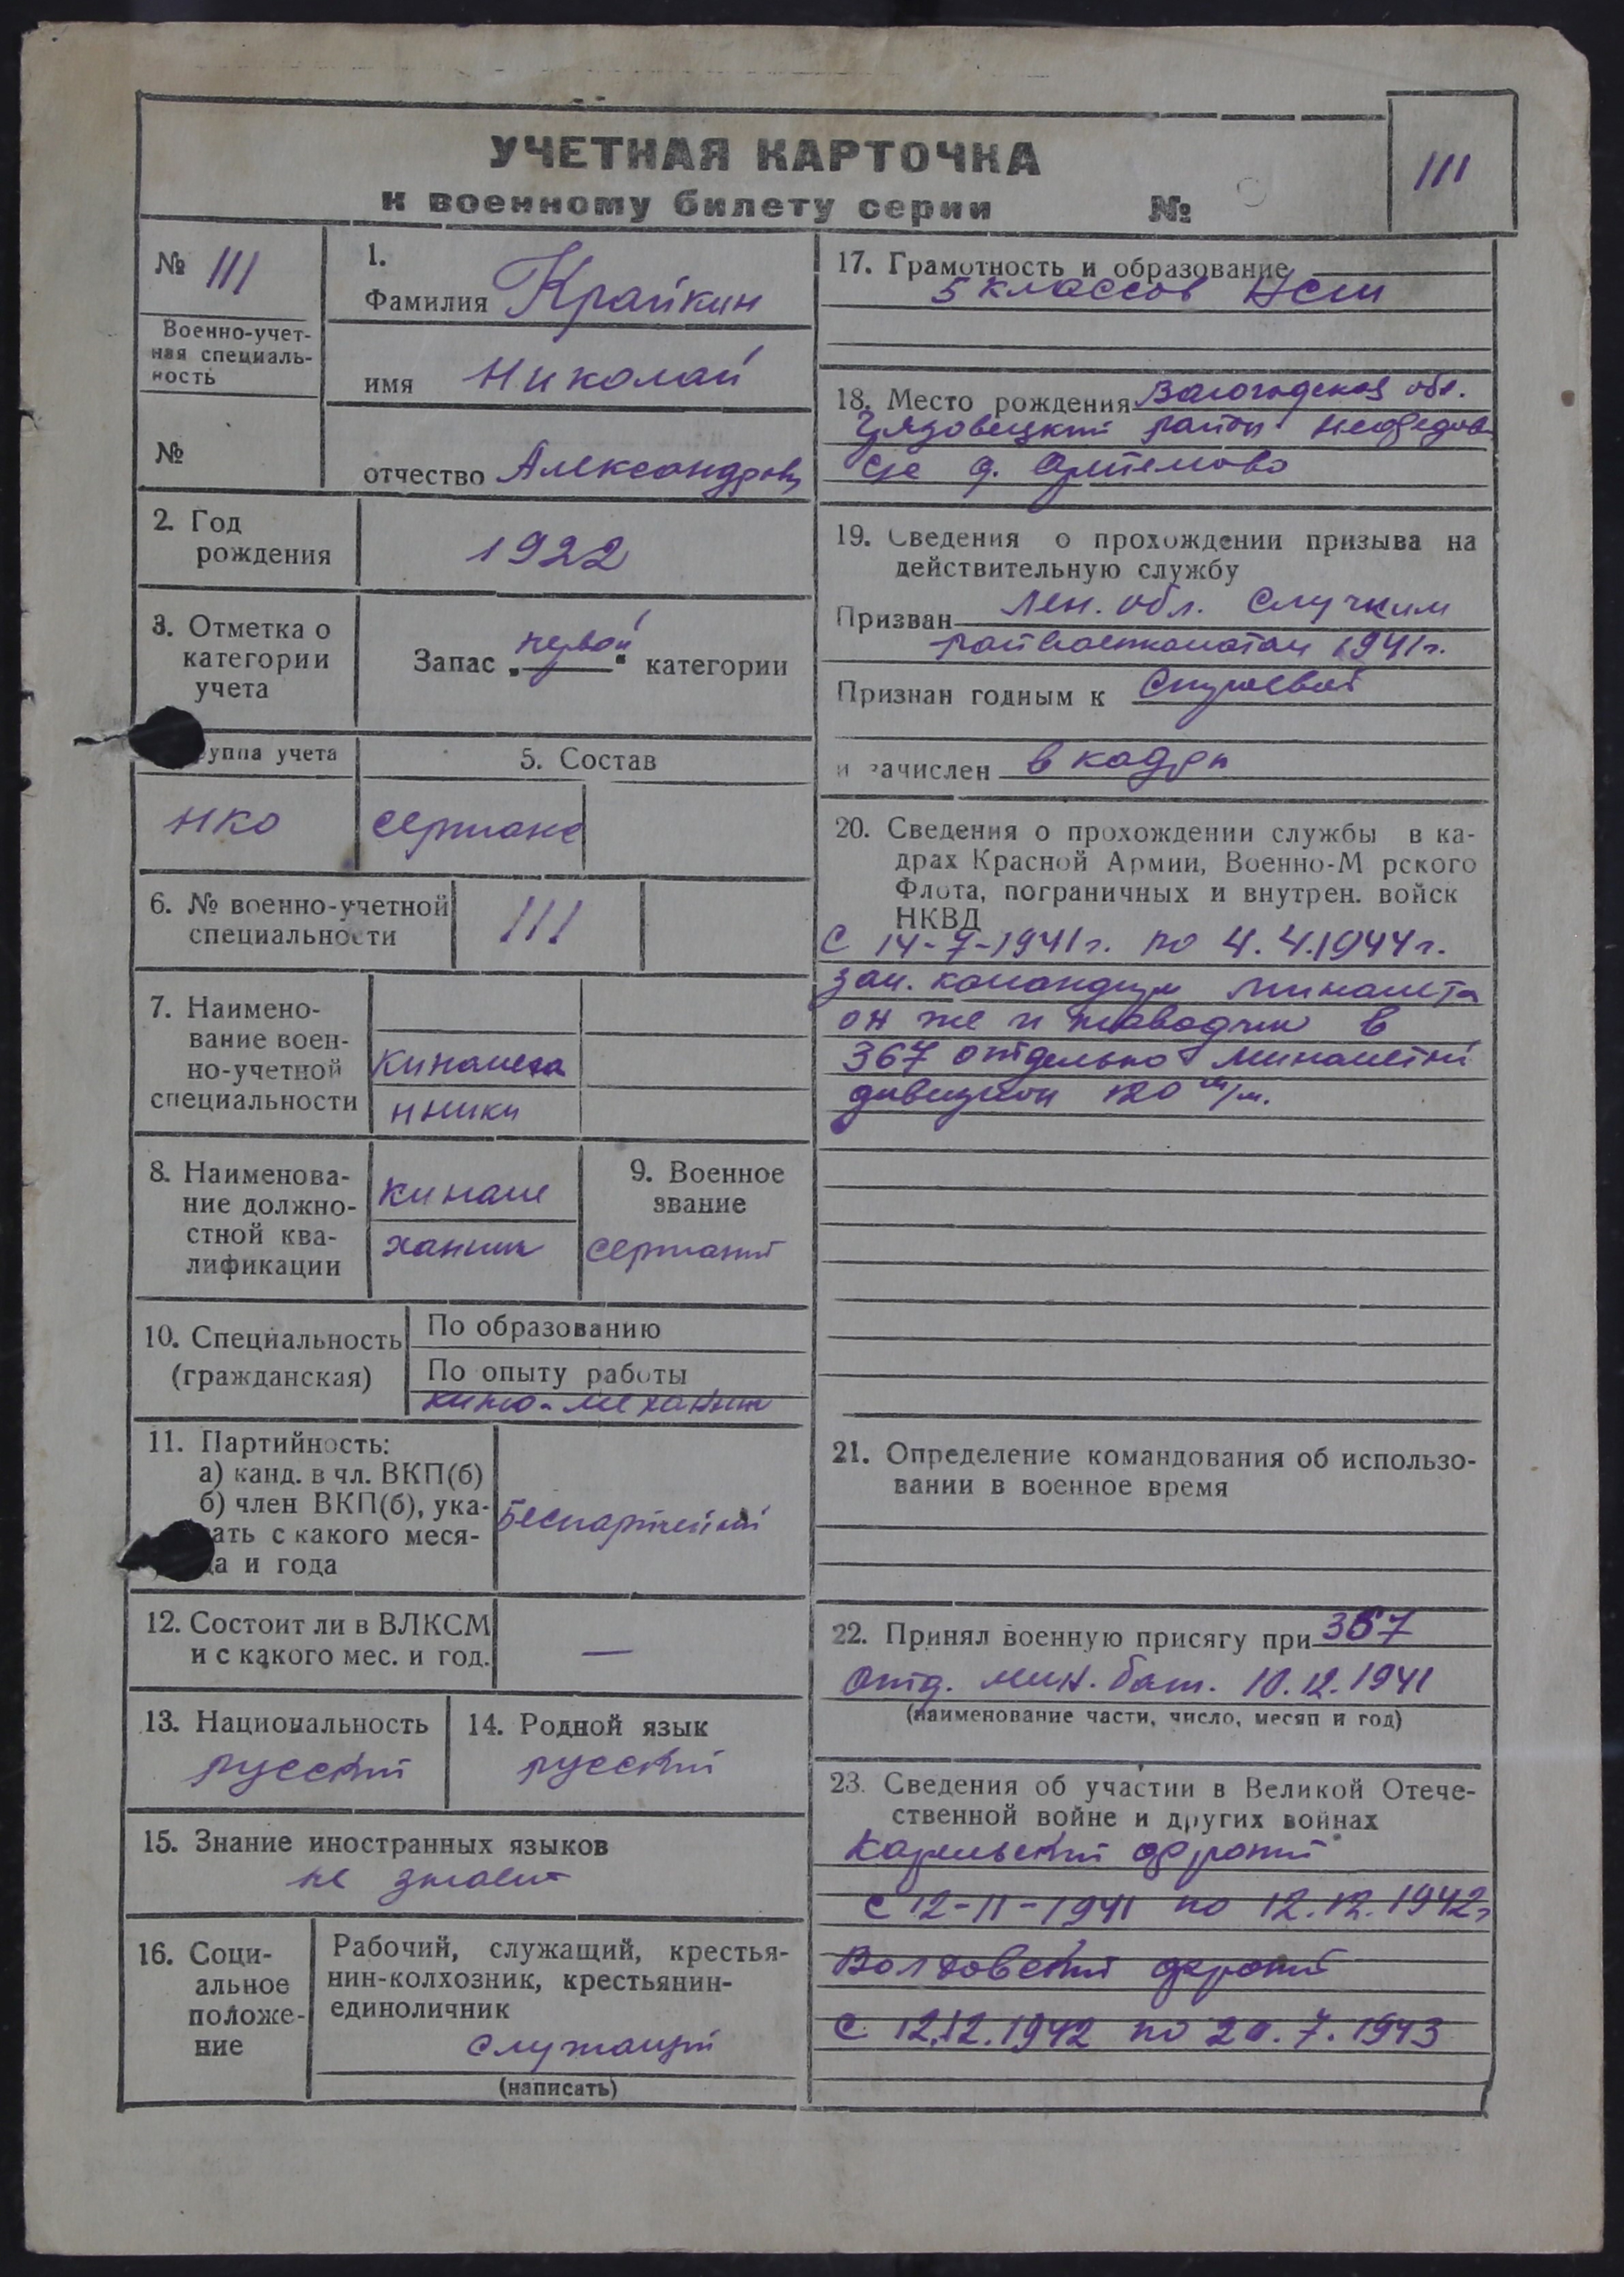 УЧЕТНАЯ КАРТОЧКА
к военному билету серии №
111
№ 111
Военно-учет-
ная специаль-
ность
№
1.
Фамилия Крайкин
имя Николай
отчество Александров
2. Год
рождения
1922
3. Отметка о
категории
учета
Запас „первой“ категории
уппа учета
НКО
5. Состав
сержанс
6. № военно-учетной
специальности
111
7. Наимено-
вание воен-
но-учетной
специальности
кинамеха
нники
8. Наименова-
ние должно-
стной ква-
лификации
кинаме
ханик
9. Военное
звание
сержант
10. Специальность
(гражданская)
По образованию
По опыту работы
кино-механик
11. Партийность:
а) канд. в чл. ВКП(б)
б) член ВКП(б), ука-
ать с какого меся-
ца и года
Беспартийный
12. Состоит ли в ВЛКСМ
и с какого мес. и год.
—
13. Национальность
русский
14. Родной язык
русский
15. Знание иностранных языков
не знает
16. Соци-
альное
положе-
ние
Рабочий, служащий, крестья-
нин-колхозник, крестьянин-
единоличник
служащий
(написать)
17. Грамотность и образование
5 классов НСШ
18. Место рождения Вологодская обл.
Грязовецкий район
с/с д. Артемово
19. Сведения о прохождении призыва на
действительную службу
Призван Лен. обл. Слуцким
райвоенкоматом 1941г.
Признан годным к Строевой
и зачислен в кадры
20. Сведения о прохождении службы в ка-
драх Красной Армии, Военно-М рского
Флота, пограничных и внутрен. войск
НКВД
С 14-7-1941г. по 4.4.1944г.
зам. командира миномета
он же и наводчик в
367 отдельно минометный
дивизион 120 м/м.
21. Определение командования об использо-
вании в военное время
22. Принял военную присягу при 367
Отд. мин. бат. 10.12.1941
(наименование части, число, месяц и год)
23. Сведения об участии в Великой Отече-
ственной войне и других войнах
Карельский фронт
с 12-11-1941 по 12.12.1942г
Волховский фронт
с 12.12.1942 по 20.7.1943